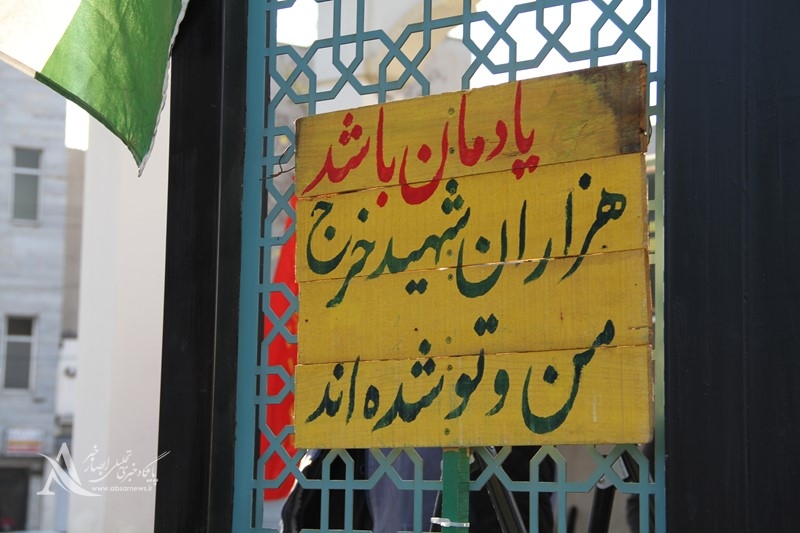 یادمان باشد
هزاران شهید خرج
من و تو شده اند
پایگاه خبری تحلیلی ابصار خبر
www.absarnews.ir